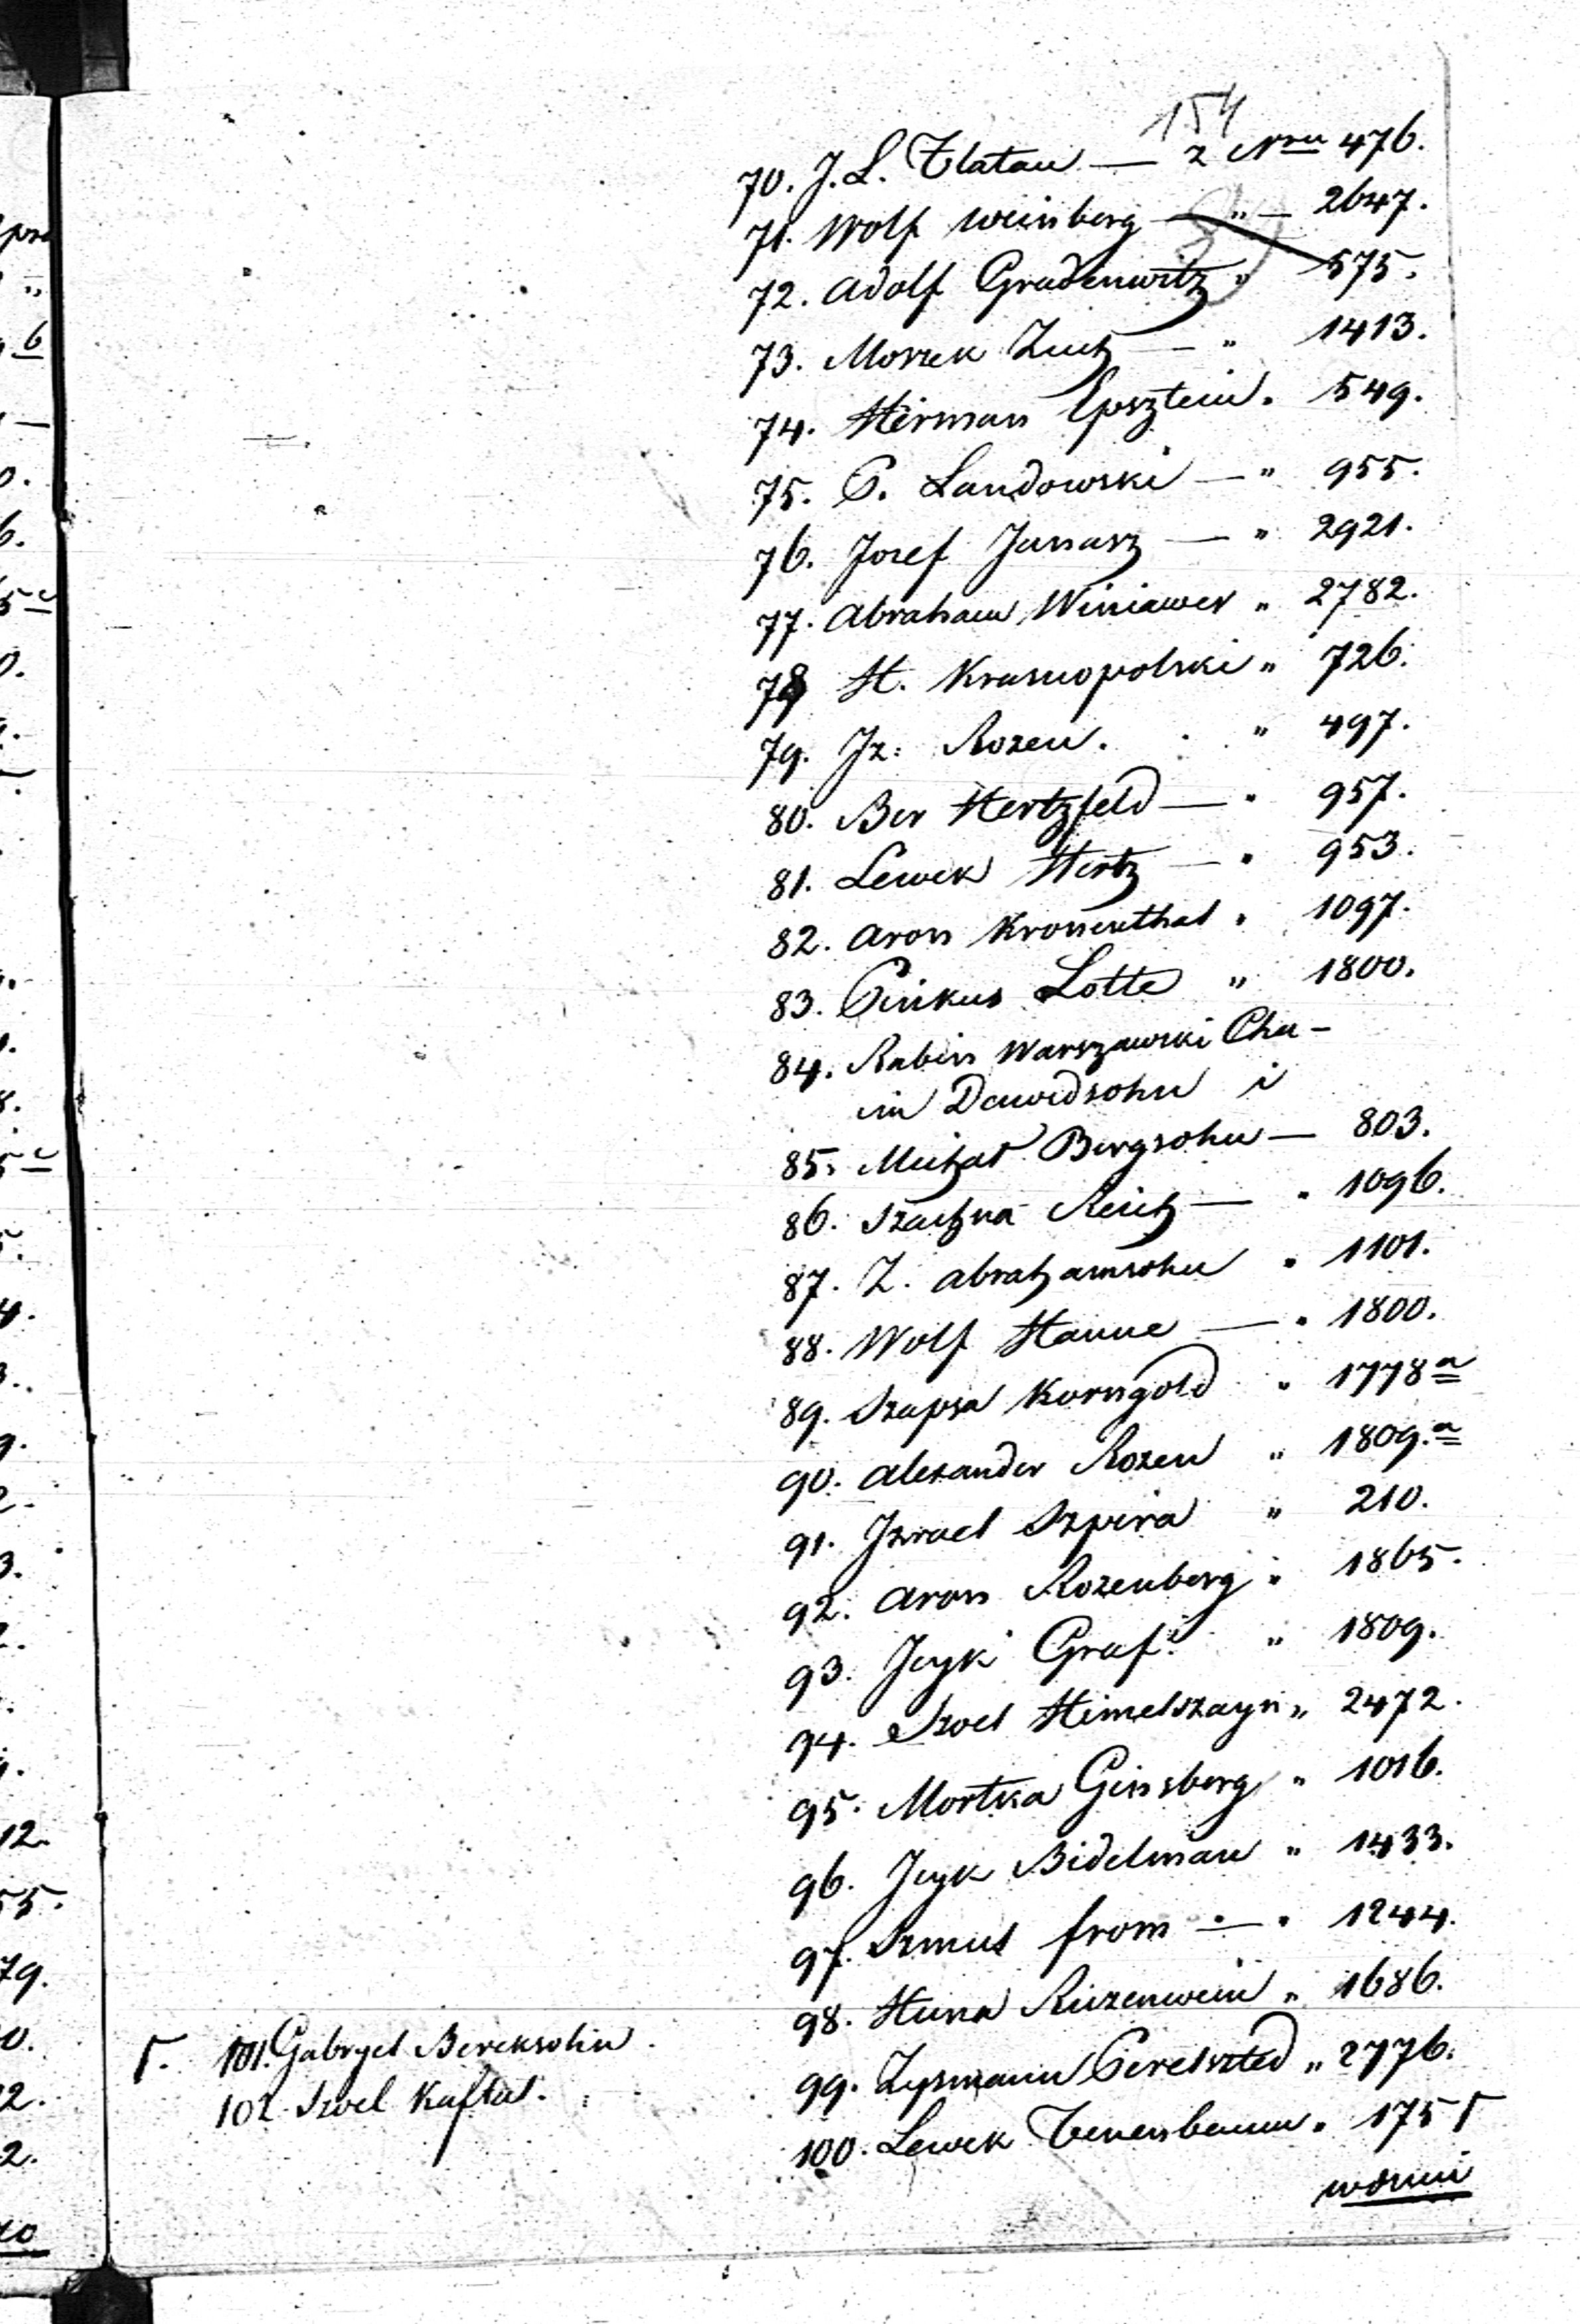 154
70. J. L. Flatau — z Nru 476.
71. Wolf Weinberg — " — 2647.
72. Adolf Gradenwitz " 575.
73. Moszek Zuch — " 1413.
74. Herman Epsztein " 549.
75. P. Landowski — " 955.
76. Jozef Janasz — " 2921.
77. Abraham Winiawer " 2782.
78 H. Krasnopolski " 726.
79. Jz: Rozen. " 497.
80. Ber Hertzfeld — " 957.
81. Lewek Hertz — " 953.
82. Aron Kronenthal " 1097.
83. Pinkus Lotte " 1800.
84. Rabin Warszawski Cha-
im Dawidsohn i
85. Michał Bergsohn — 803.
86. Szachna Reich — " 1096.
87. Z. Abrahamsohn " 1101.
88. Wolf Hanne — " 1800.
89. Szapsa Korngold " 1778a
90. Alexander Rozen " 1809.a
91. Izrael Szpira " 210.
92. Aron Rozenberg " 1865.
93. Jcyk Graf. " 1809.
94. Szoel Himelszayn " 2472.
95. Mortka Ginsberg " 1016.
96. Jcyk Bidelman " 1433.
97. Szmul from — " 1244.
98. Huna Ruzenwein " 1686.
99. Zysmann Perelszted " 2776.
100. Lewek Tenenbaum " 175
Γ. 101. Gabryel Bereksohn.
102. Szoel Kaftal.